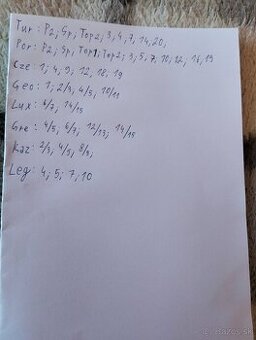 Tur: P2; Sp, Top2; 3, 4, 7, 14, 20,
Por: P2, Sp, Top1, Top2; 3; 5, 7, 10, 12, 16, 19
Cze: 1; 4; 9; 12, 18, 19
Geo: 1; 2/3, 4/5, 10/11
Lux: 6/7, 14/15
Gre: 4/5; 6/7; 12/13; 14/15
Kaz: 2/3, 4/5, 8/9,
Leg: 4; 5; 7, 10